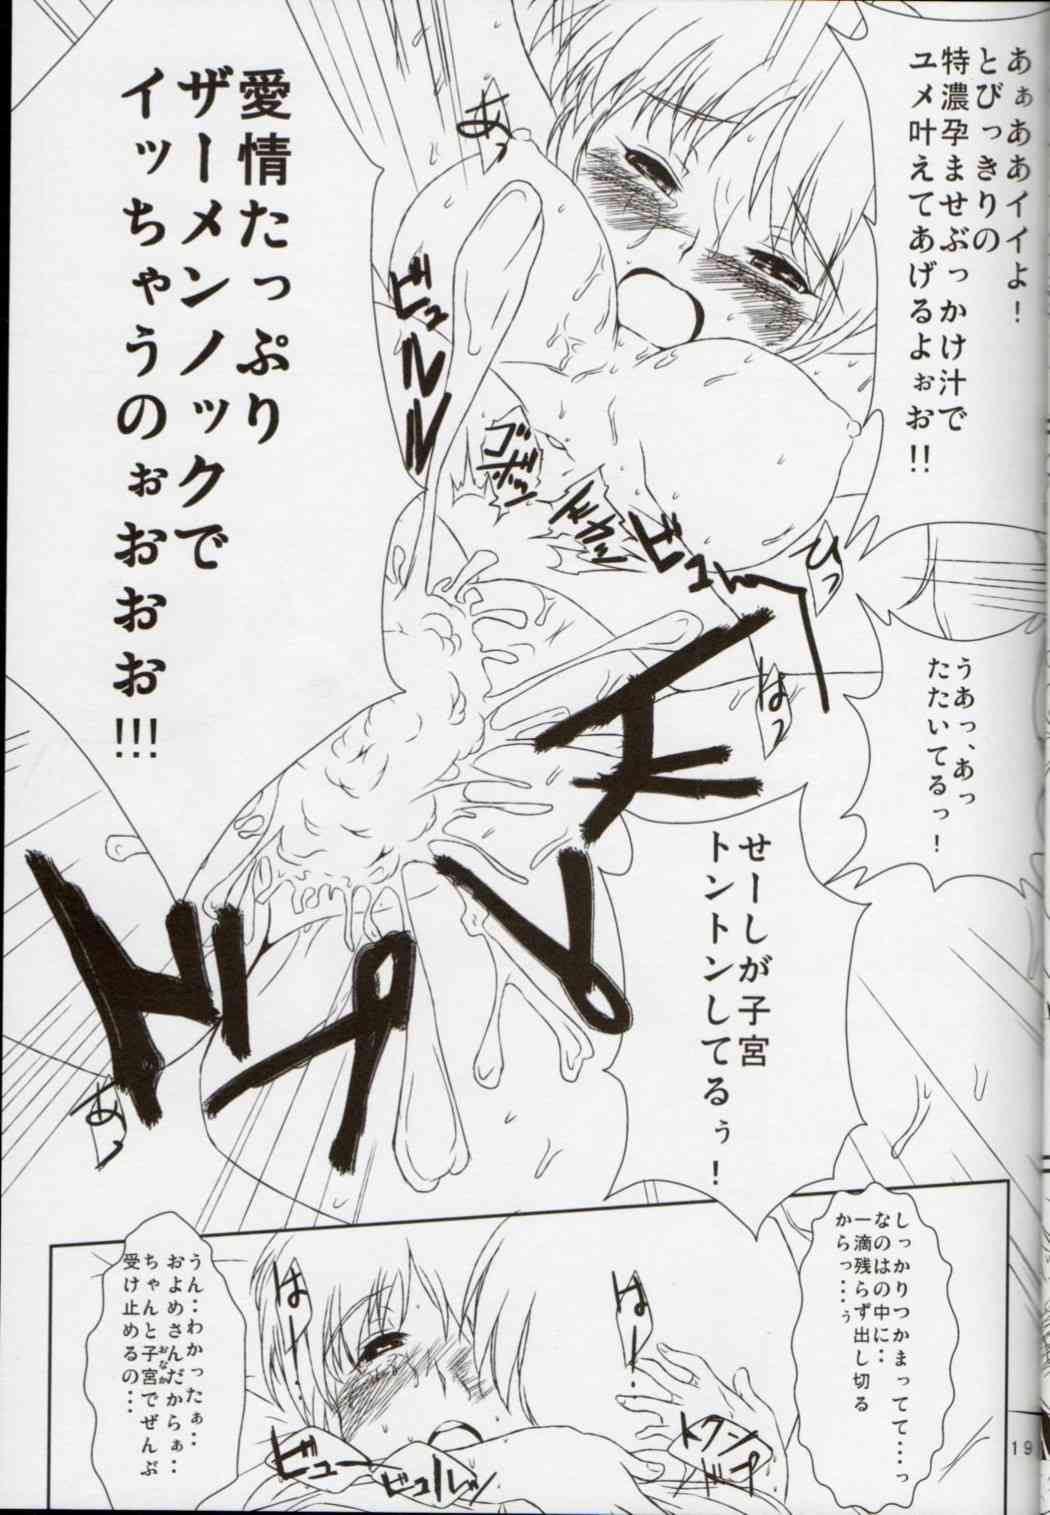 あぁああイイよ！
とびっきりの
特濃孕ませぶっかけ汁で
ユメ叶えてあげるよぉお!!
あっ
ビュルルル
ゴポッ
ドカッ
ひっ
うあっ、あっ
たたいてるっ！
愛情たっぷり
ザーメンノックで
イッちゃうのぉおおお!!!
はっ
せーしが子宮
トントンしてるぅ！
ドプ
あっ
しっかりつかまってて・・・っ
なのはの中に・・
一滴残らず出し切る
からっ・・・ぅ
はー・・・
はー・・・
トクン
ドプッ
うん・・わかったぁ・・
およめさんだからぁ・・
ちゃんと子宮でぜんぶ
おなか
受け止めるの・・・
ビュー
ビュルルッ
19